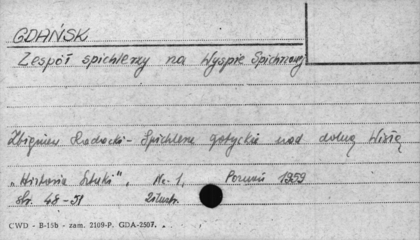 GDAŃSK
Zespół spichlerzy na Wyspie Spichrzowej
Zbigniew Radacki - Spichlerze gotyckie nad dolną Wisłą
"Historia Sztuki", Nr. 1, Poznań 1959
str. 48-51 ilustr.
CWD - B-15b - zam. 2109-P. GDA-2557.